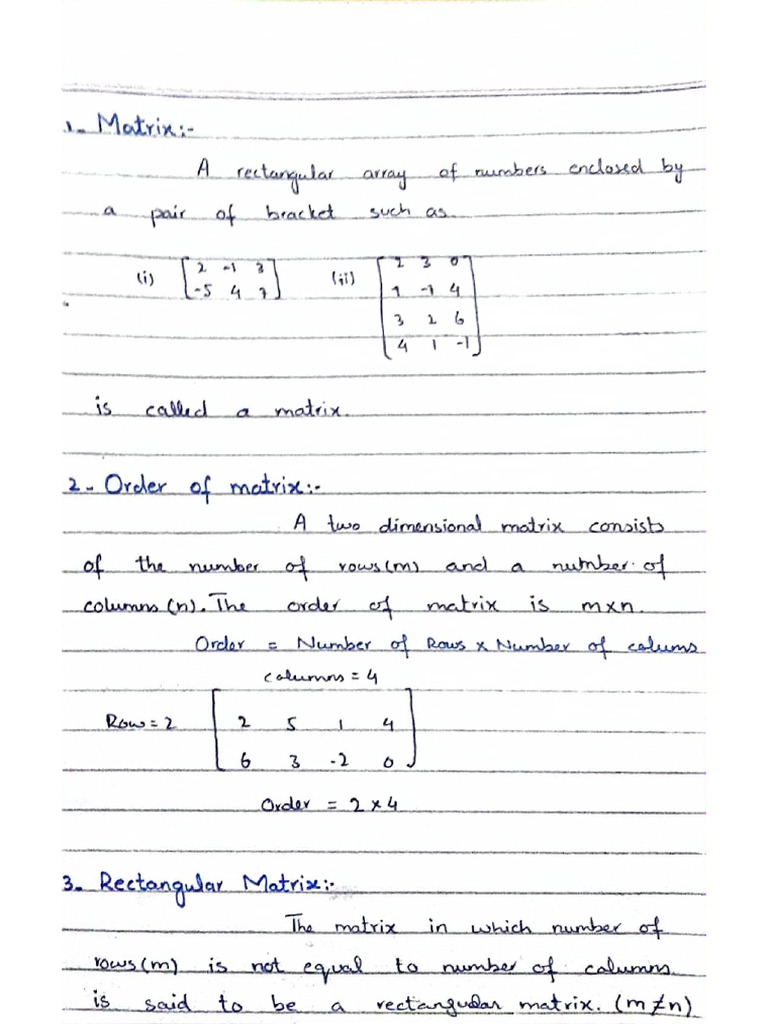 1- Matrix:-
A rectangular array of numbers enclosed by
a pair of bracket such as
(i) [2 -1 3
-5 4 7] (ii) [2 3 0
1 -1 4
3 2 6
4 1 -1]
is called a matrix.
2- Order of matrix:-
A two dimensional matrix consists
of the number of rows (m) and a number of
columns (n). The order of matrix is m×n.
Order = Number of Rows × Number of colums
columns = 4
Row = 2 [2 5 1 4
6 3 -2 0]
Order = 2 × 4
3- Rectangular Matrix:-
The matrix in which number of
rows (m) is not equal to number of columns
is said to be a rectangular matrix. (m≠n)